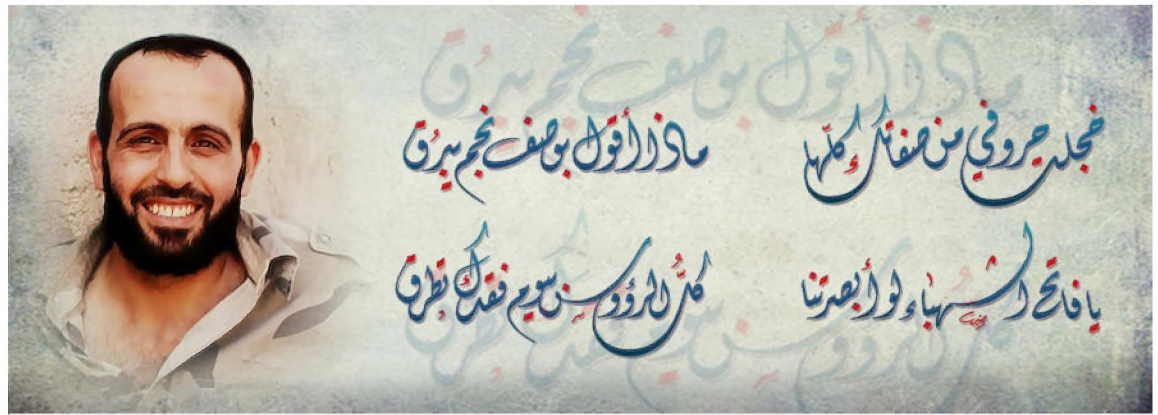 خجلت حروفي من صفاتك كلّها ماذا أقول بوصف نجم يبرُق
يا فاتح الشهباء لو أبصرتنا كلُّ الرؤوس بيوم فقدك تطرق
ماذا أقول بوصف نجم يبرُق